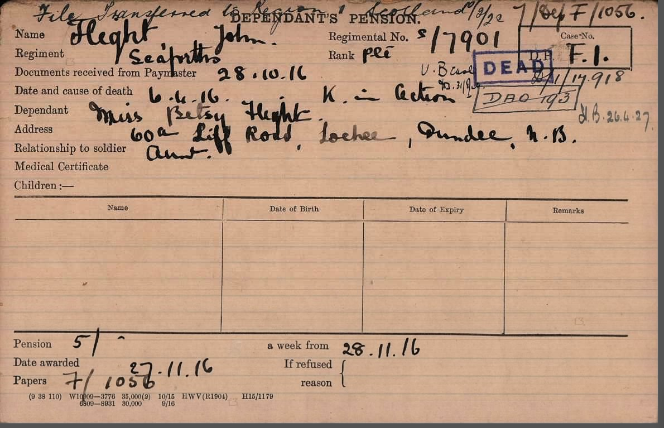 File Transferred to Region 1 Scotland 7/Dep F/1056.
DEPENDANT'S PENSION.
Name Flight John. Regimental No. S/17901 Case No. F.1.
Regiment Seaforths Rank Pte
Documents received from Paymaster 28.10.16 DEAD
Date and cause of death 6.4.16. K. in Action DAO 193
Dependant Miss Betsy Flight. H.B. 26.4.27.
Address 60a Liff Road, Lochee, Dundee, N.B.
Relationship to soldier Aunt.
Medical Certificate
Children:—
Name Date of Birth Date of Expiry Remarks
Pension 5/- a week from 28.11.16
Date awarded 27.11.16 If refused
Papers 7/1056 reason
(9 38 110) W10909—3776 35,000(2) 10/15 HWV(R1904) H15/1179
6809—8931 30,000 9/16